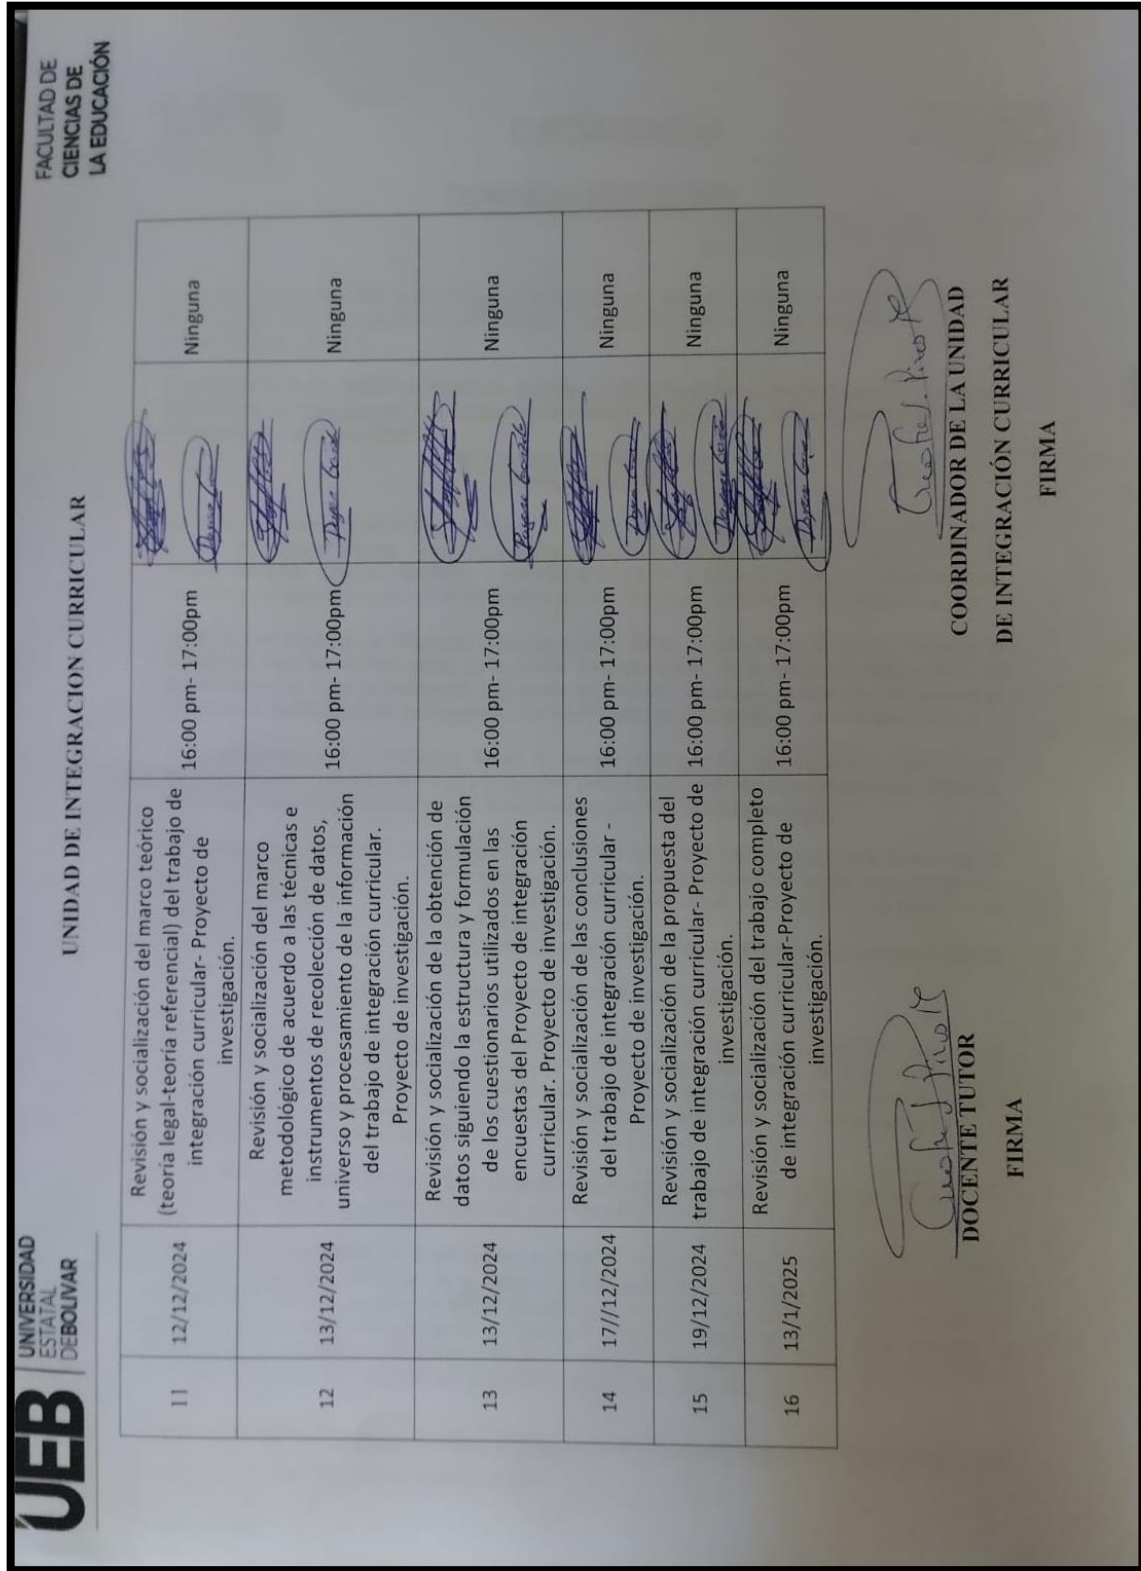 UEB
UNIVERSIDAD
ESTATAL
DE BOLIVAR
FACULTAD DE
CIENCIAS DE
LA EDUCACIÓN
UNIDAD DE INTEGRACION CURRICULAR
11
12/12/2024
Revisión y socialización del marco teórico
(teoría legal-teoría referencial) del trabajo de
integración curricular- Proyecto de
investigación.
16:00 pm- 17:00pm
Ninguna
12
13/12/2024
Revisión y socialización del marco
metodológico de acuerdo a las técnicas e
instrumentos de recolección de datos,
universo y procesamiento de la información
del trabajo de integración curricular.
Proyecto de investigación.
16:00 pm- 17:00pm
Ninguna
13
13/12/2024
Revisión y socialización de la obtención de
datos siguiendo la estructura y formulación
de los cuestionarios utilizados en las
encuestas del Proyecto de integración
curricular. Proyecto de investigación.
16:00 pm- 17:00pm
Ninguna
14
17//12/2024
Revisión y socialización de las conclusiones
del trabajo de integración curricular -
Proyecto de investigación.
16:00 pm- 17:00pm
Ninguna
15
19/12/2024
Revisión y socialización de la propuesta del
trabajo de integración curricular- Proyecto de
investigación.
16:00 pm- 17:00pm
Ninguna
16
13/1/2025
Revisión y socialización del trabajo completo
de integración curricular-Proyecto de
investigación.
16:00 pm- 17:00pm
Ninguna
DOCENTE TUTOR
FIRMA
COORDINADOR DE LA UNIDAD
DE INTEGRACIÓN CURRICULAR
FIRMA